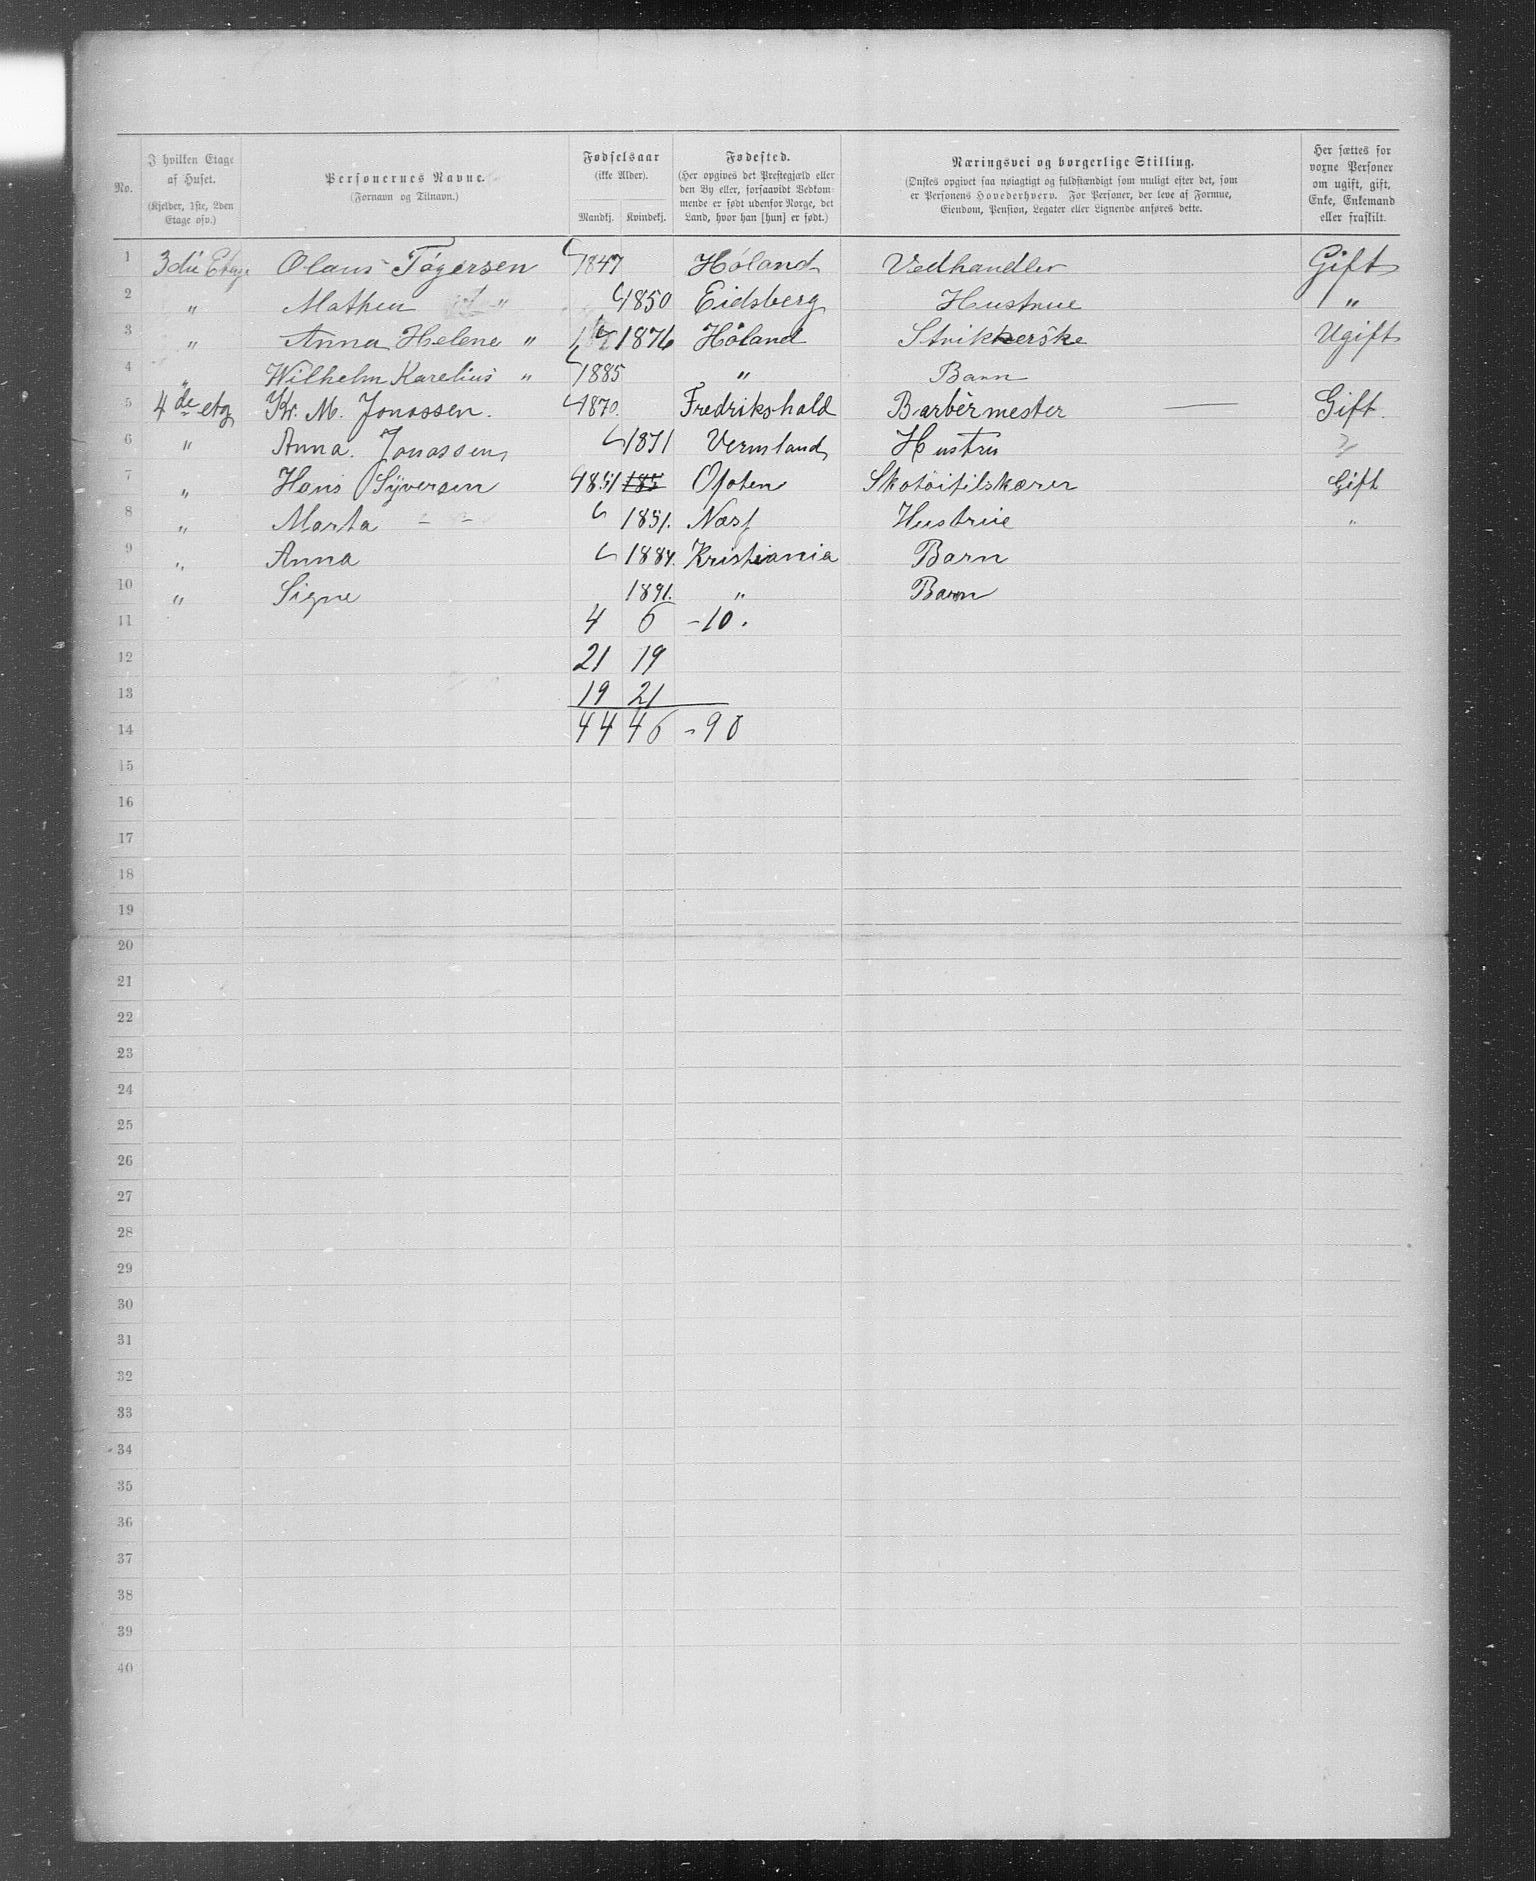 No.
I hvilken Etage af Huset.
(Kjelder, 1ste, 2den Etage osv.)
Personernes Navne.
(Fornavn og Tilnavn.)
Fødselsaar
(ikke Alder).
Mandkj. Kvindekj.
Fødested.
(Her opgives det Prestegjæld eller den By eller, forsaavidt Vedkommende er født udenfor Norge, det Land, hvor han [hun] er født.)
Næringsvei og borgerlige Stilling.
(Ønskes opgivet saa nøiagtigt og fuldstændigt som muligt efter det, som er Personens Hovederhverv. For Personer, der leve af Formue, Eiendom, Pension, Legater eller Lignende anføres dette.
Her sættes for voxne Personer om ugift, gift, Enke, Enkemand eller fraskilt.
1 3die Etage Olaus Tøgersen 1847 Høland Vedhandler Gift
2 " Mathea " 1850 Eidsberg Hustrue "
3 " Anna Helene " 1876 Høland Strikkerske Ugift
4 " Wilhelm Karelius " 1885 " Barn
5 4de etg Kr. M. Jonassen. 1870. Fredrikshald Barbérmester — Gift.
6 " Anna. Jonassen 1871 Vermland Hustru
7 " Hans Syversen 1851 185 Ofoten Skotøitilskærer Gift
8 " Marta - - 1851. Næs Hustrue "
9 " Anna 1884. Kristiania Barn
10 " Signe 1891. " Barn
11 4 6 -10.
12 21 19
13 19 21
14 44 46 -90
15
16
17
18
19
20
21
22
23
24
25
26
27
28
29
30
31
32
33
34
35
36
37
38
39
40